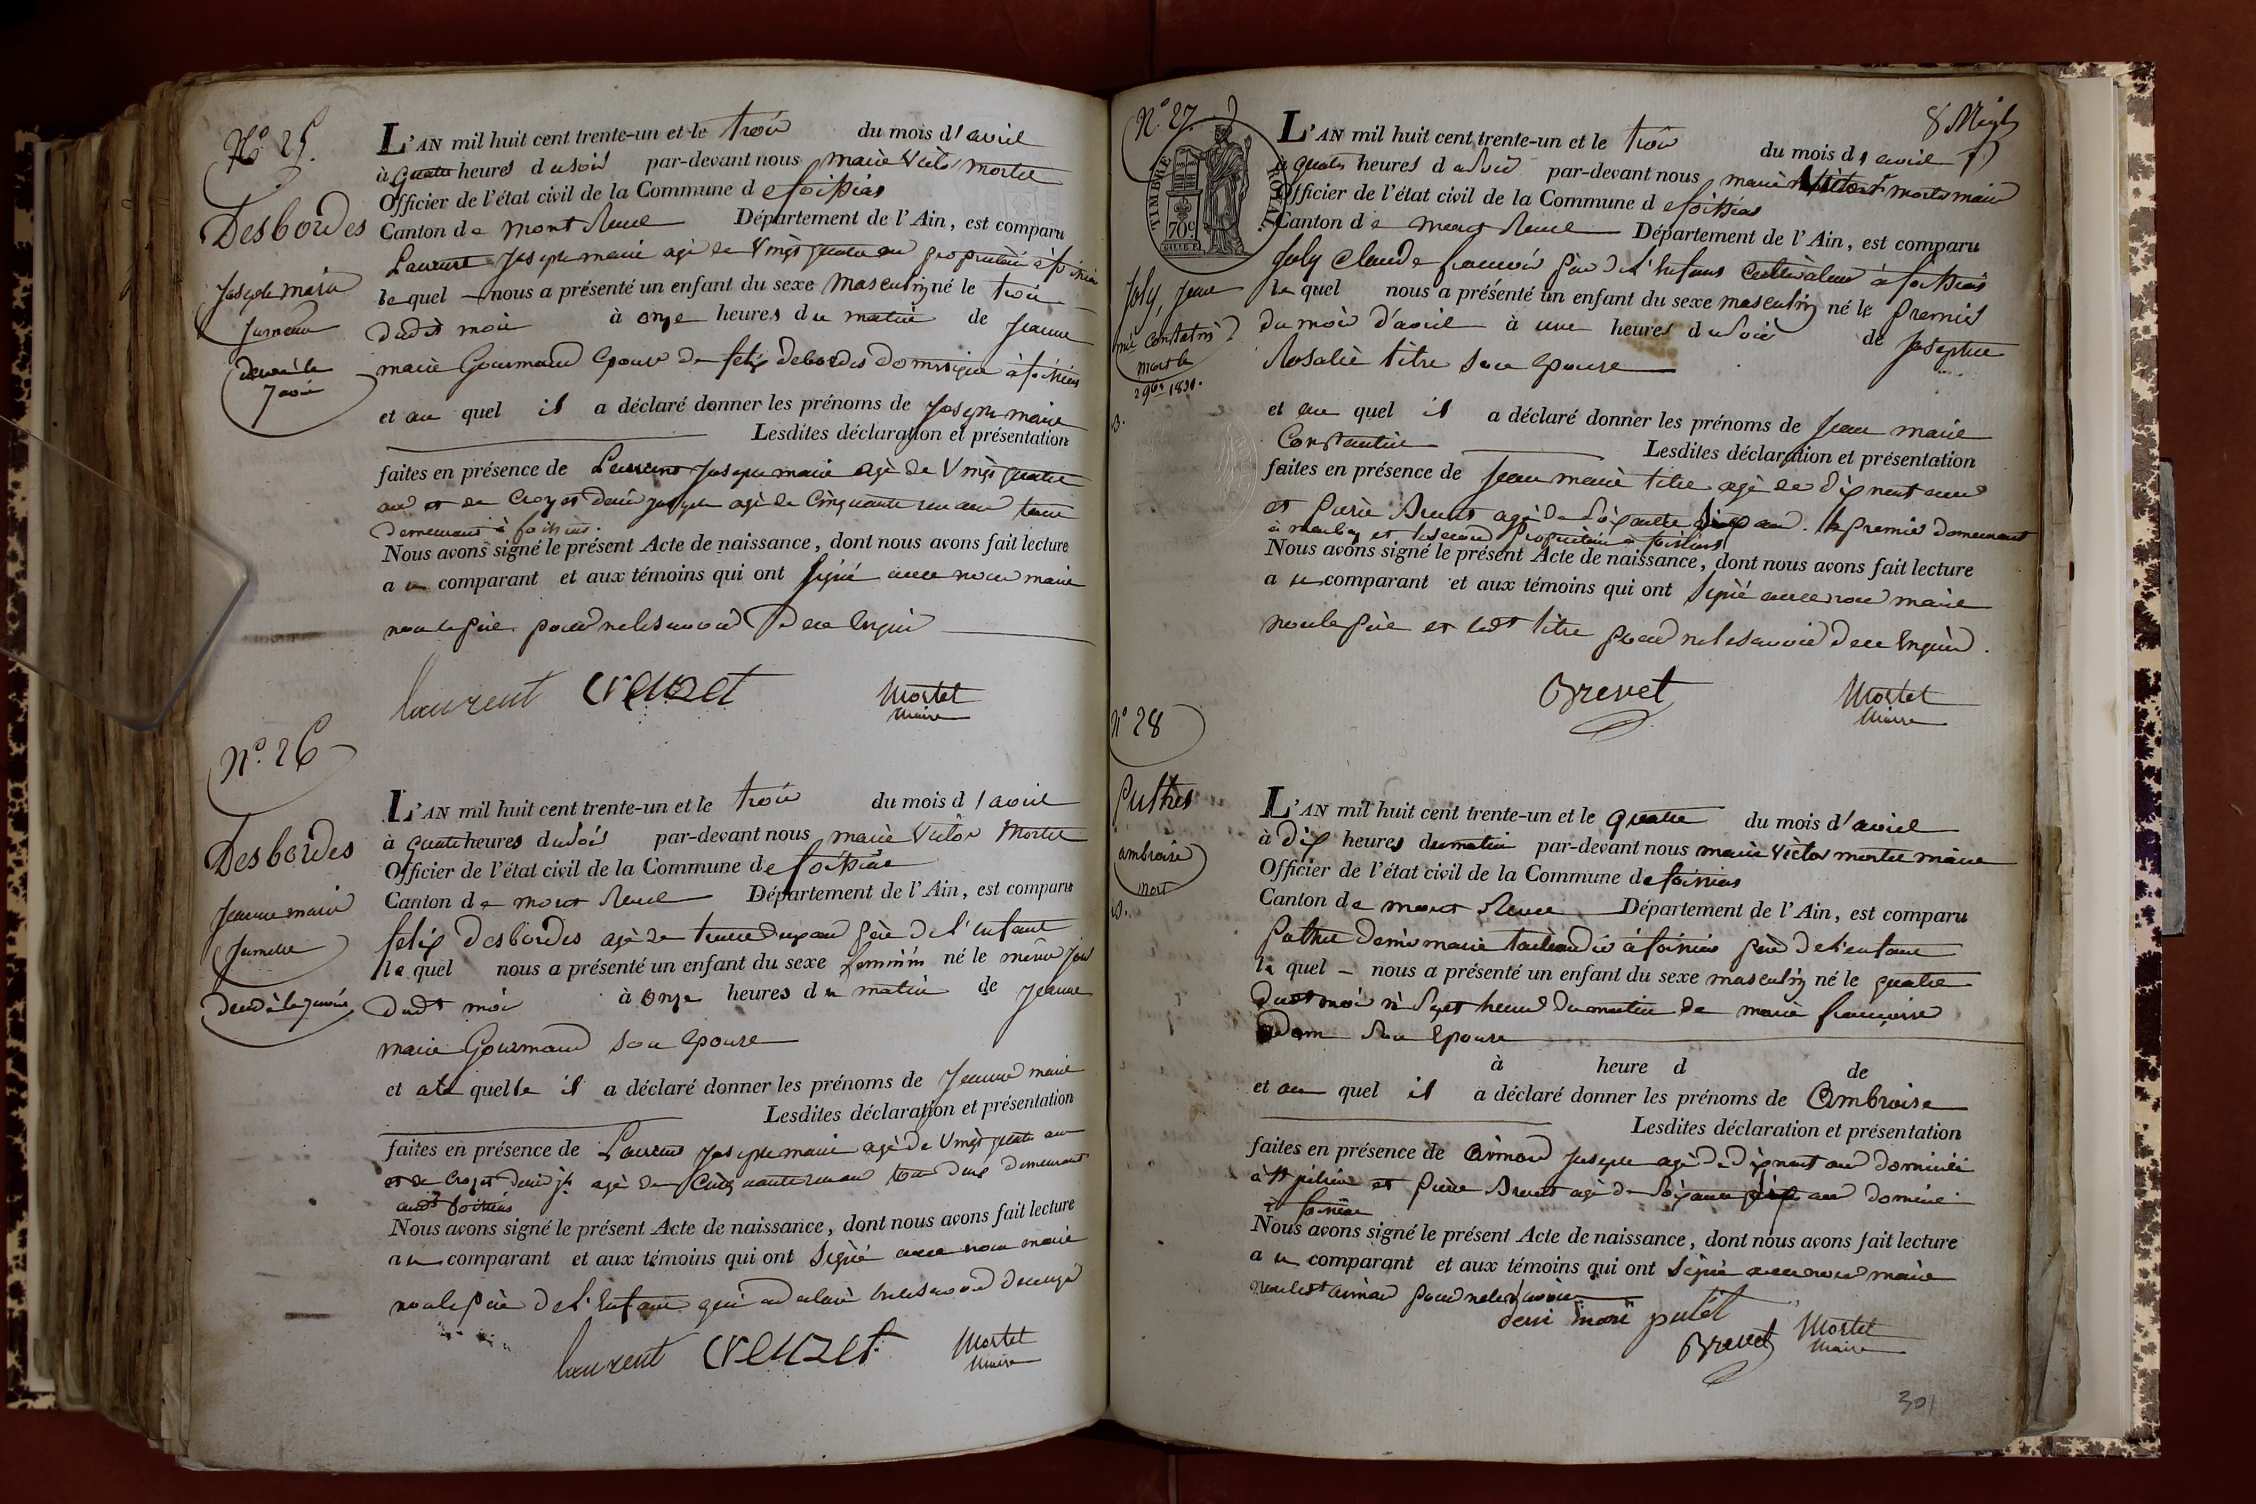 N.° 25.
Desbordes
Joseph marie
Jumeau
L'AN mil huit cent trente-un et le trois du mois d'avril
à quatre heures du soir par-devant nous marie Victor mortel
Officier de l'état civil de la Commune de foissiat
Canton de mont Revel Département de l'Ain, est comparu
Laurent Joseph marie agé de Vingt quatre an propriétaire à foissiat
le quel nous a présenté un enfant du sexe masculin né le trois
dudit mois à onze heures du matin de Jeanne
marie Gourmand Epouse de felix debordes à foissiat
et au quel il a déclaré donner les prénoms de Joseph marie
Lesdites déclaration et présentation
faites en présence de Laurent Joseph marie agé de Vingt quatre
an et de agé de Cinquante un ans tous
demeurant à foissiat.
Nous avons signé le présent Acte de naissance, dont nous avons fait lecture
au comparant et aux témoins qui ont signé avec nous maire
non le père pour ne le savoir de ce Enquis
laurent creuzet Mortel
Maire
N.° 26
Desbordes
Jeanne marie
Jumelle
L'AN mil huit cent trente-un et le trois du mois d'avril
à quatre heures du soir par-devant nous marie Victor Mortel
Officier de l'état civil de la Commune de foissiat
Canton de mont Revel Département de l'Ain, est comparu
felix Desbordes agé de père de l'enfant
le quel nous a présenté un enfant du sexe feminin né le même jour
dudt mois à onze heures du matin de Jeanne
marie Gourmand son Epouse
et a la quelle il a déclaré donner les prénoms de Jeanne marie
Lesdites déclaration et présentation
faites en présence de Laurent Joseph marie agé de Vingt quatre an
et de agé de Cinquante un an tous deux demeurant
audt foissiat
Nous avons signé le présent Acte de naissance, dont nous avons fait lecture
au comparant et aux témoins qui ont signé avec nous maire
non le père de l'Enfant qui a déclaré ne le savoir de ce enquis
laurent creuzet Mortel
Maire
N.° 27.
TIMBRE ROYAL
70c
Joly, Jean
mie Constantin
mort le
29bre 1831.
L'AN mil huit cent trente-un et le trois du mois d'avril
à quatre heures du soir par-devant nous marie Victor mortel maire
Officier de l'état civil de la Commune de foissiat
Canton de mont Revel Département de l'Ain, est comparu
Joly Claude francois père de l'Enfant Cultivateur à foissiat
le quel nous a présenté un enfant du sexe masculin né le premier
du mois d'avril à une heures du soir de Josephte
Rosalie titre son Epouse
et au quel il a déclaré donner les prénoms de Jean marie
Constantin
Lesdites déclaration et présentation
faites en présence de Jean marie titre agé de dix neuf ans
et pierre Brevet agé de Soixante dix ans. le premier demeurant
à et le second propriétaire à foissiat
Nous avons signé le présent Acte de naissance, dont nous avons fait lecture
au comparant et aux témoins qui ont signé avec nous maire
non le père et ledt titre pour ne le savoir de ce Enquis.
Brevet Mortel
Maire
N° 28
Puthet
ambroise
mort
L'AN mil huit cent trente-un et le quatre du mois d'avril
à dix heures du matin par-devant nous marie Victor mortel maire
Officier de l'état civil de la Commune de foissiat
Canton de mont Revel Département de l'Ain, est comparu
Puthet denis marie à foissiat père de l'enfant
le quel nous a présenté un enfant du sexe masculin né le quatre
dudt mois à Sept heures du matin de marie françoise
son Epouse
à heure d de
et au quel il a déclaré donner les prénoms de Ambroise
Lesdites déclaration et présentation
faites en présence de Joseph agé de dix neuf ans domicilié
à et pierre Brevet agé de Soixante dix ans domicilié
à foissiat
Nous avons signé le présent Acte de naissance, dont nous avons fait lecture
au comparant et aux témoins qui ont signé avec nous maire
non ledt pour ne le savoir
deni marie putet
Brevet Mortel
Maire
301